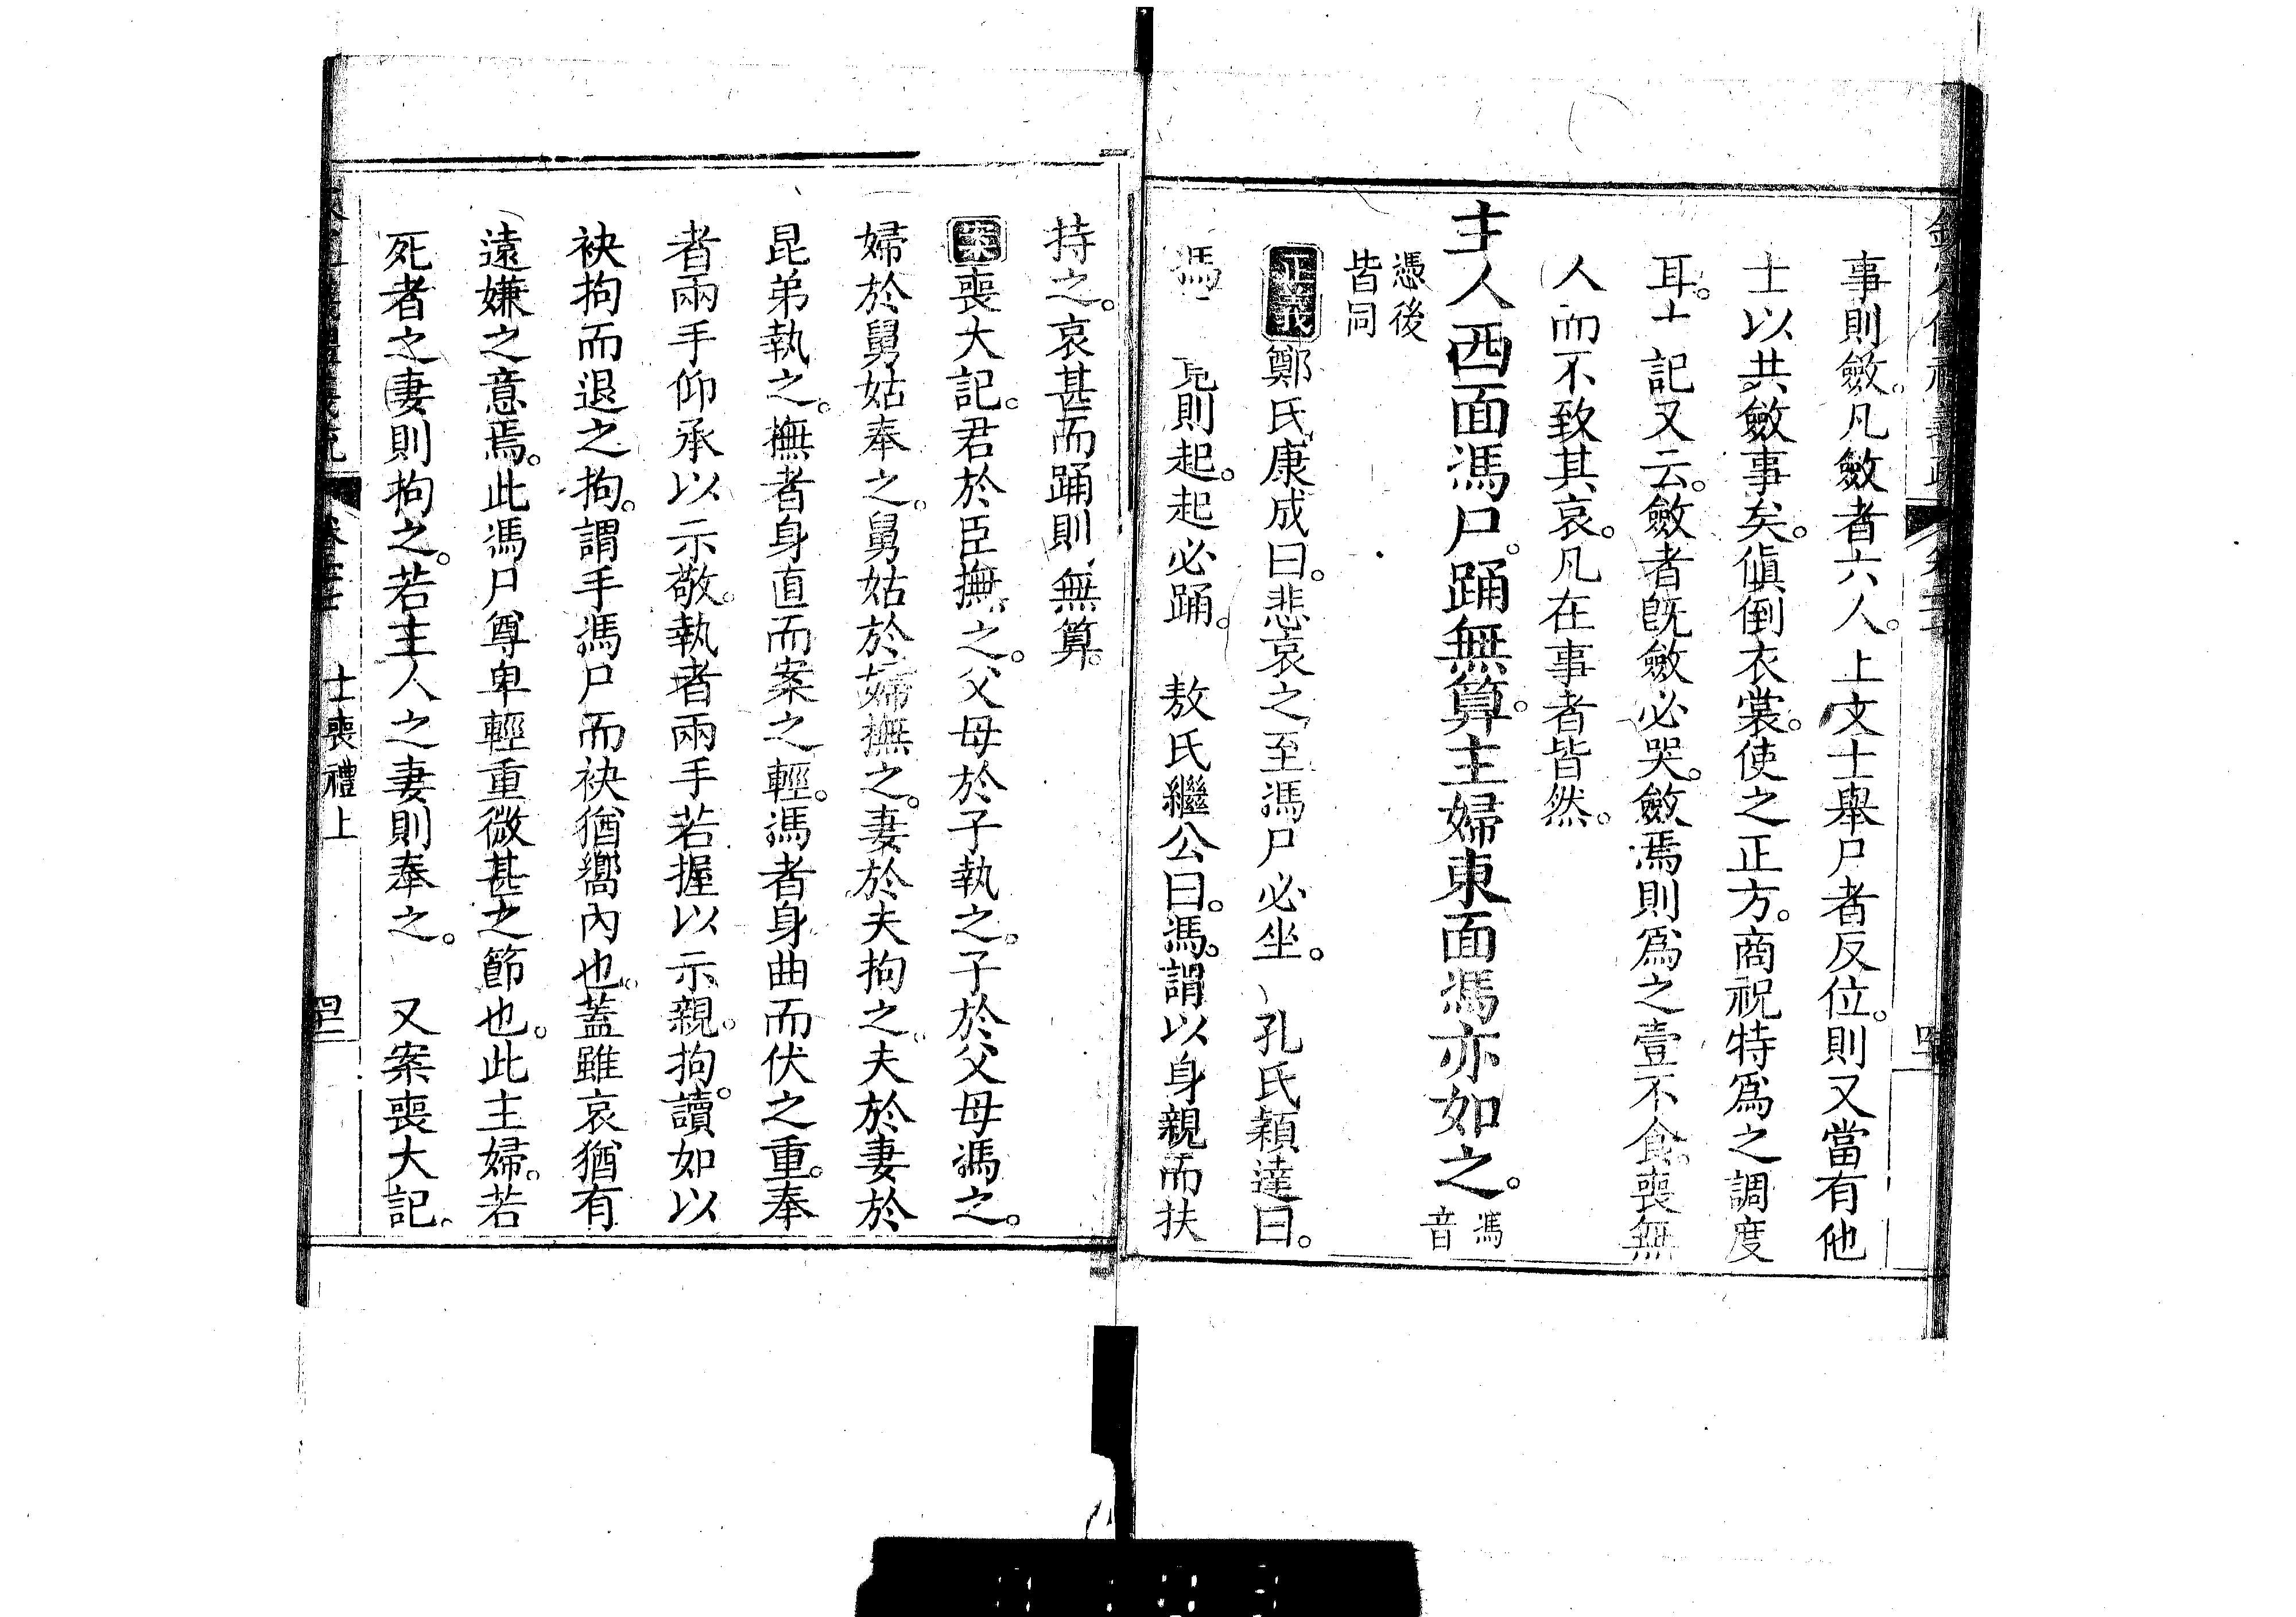 事則斂。凡斂者六人。上文士舉尸者反位。則又當有他
士以共斂事矣。傎倒衣裳。使之正方。商祝特爲之調度
耳。士 記又云。斂者旣斂必哭。斂焉則爲之壹不食。喪無
人而不致其哀。凡在事者皆然。
主人西面馮尸。踊無算。主婦東面馮亦如之。馮音
憑後皆同
正義鄭氏康成曰。悲哀之至馮尸必坐。 孔氏穎達曰。
馮 則起。起必踊。 敖氏繼公曰。馮。謂以身親而扶
持之。哀甚而踊則無算。
案喪大記。君於臣撫之。父母於子執之。子於父母馮之。
婦於舅姑奉之。舅姑於婦撫之。妻於夫拘之。夫於妻於
昆弟執之。撫者身直而案之輕。馮者身曲而伏之重。奉
者兩手仰承以示敬。執者兩手若握以示親。拘。讀如以
袂拘而退之拘。謂手馮尸而袂猶嚮內也。蓋雖哀猶有
遠嫌之意焉。此馮尸尊卑輕重微甚之節也。此主婦。若
死者之妻則拘之。若主人之妻則奉之。 又案喪大記。
士喪禮上